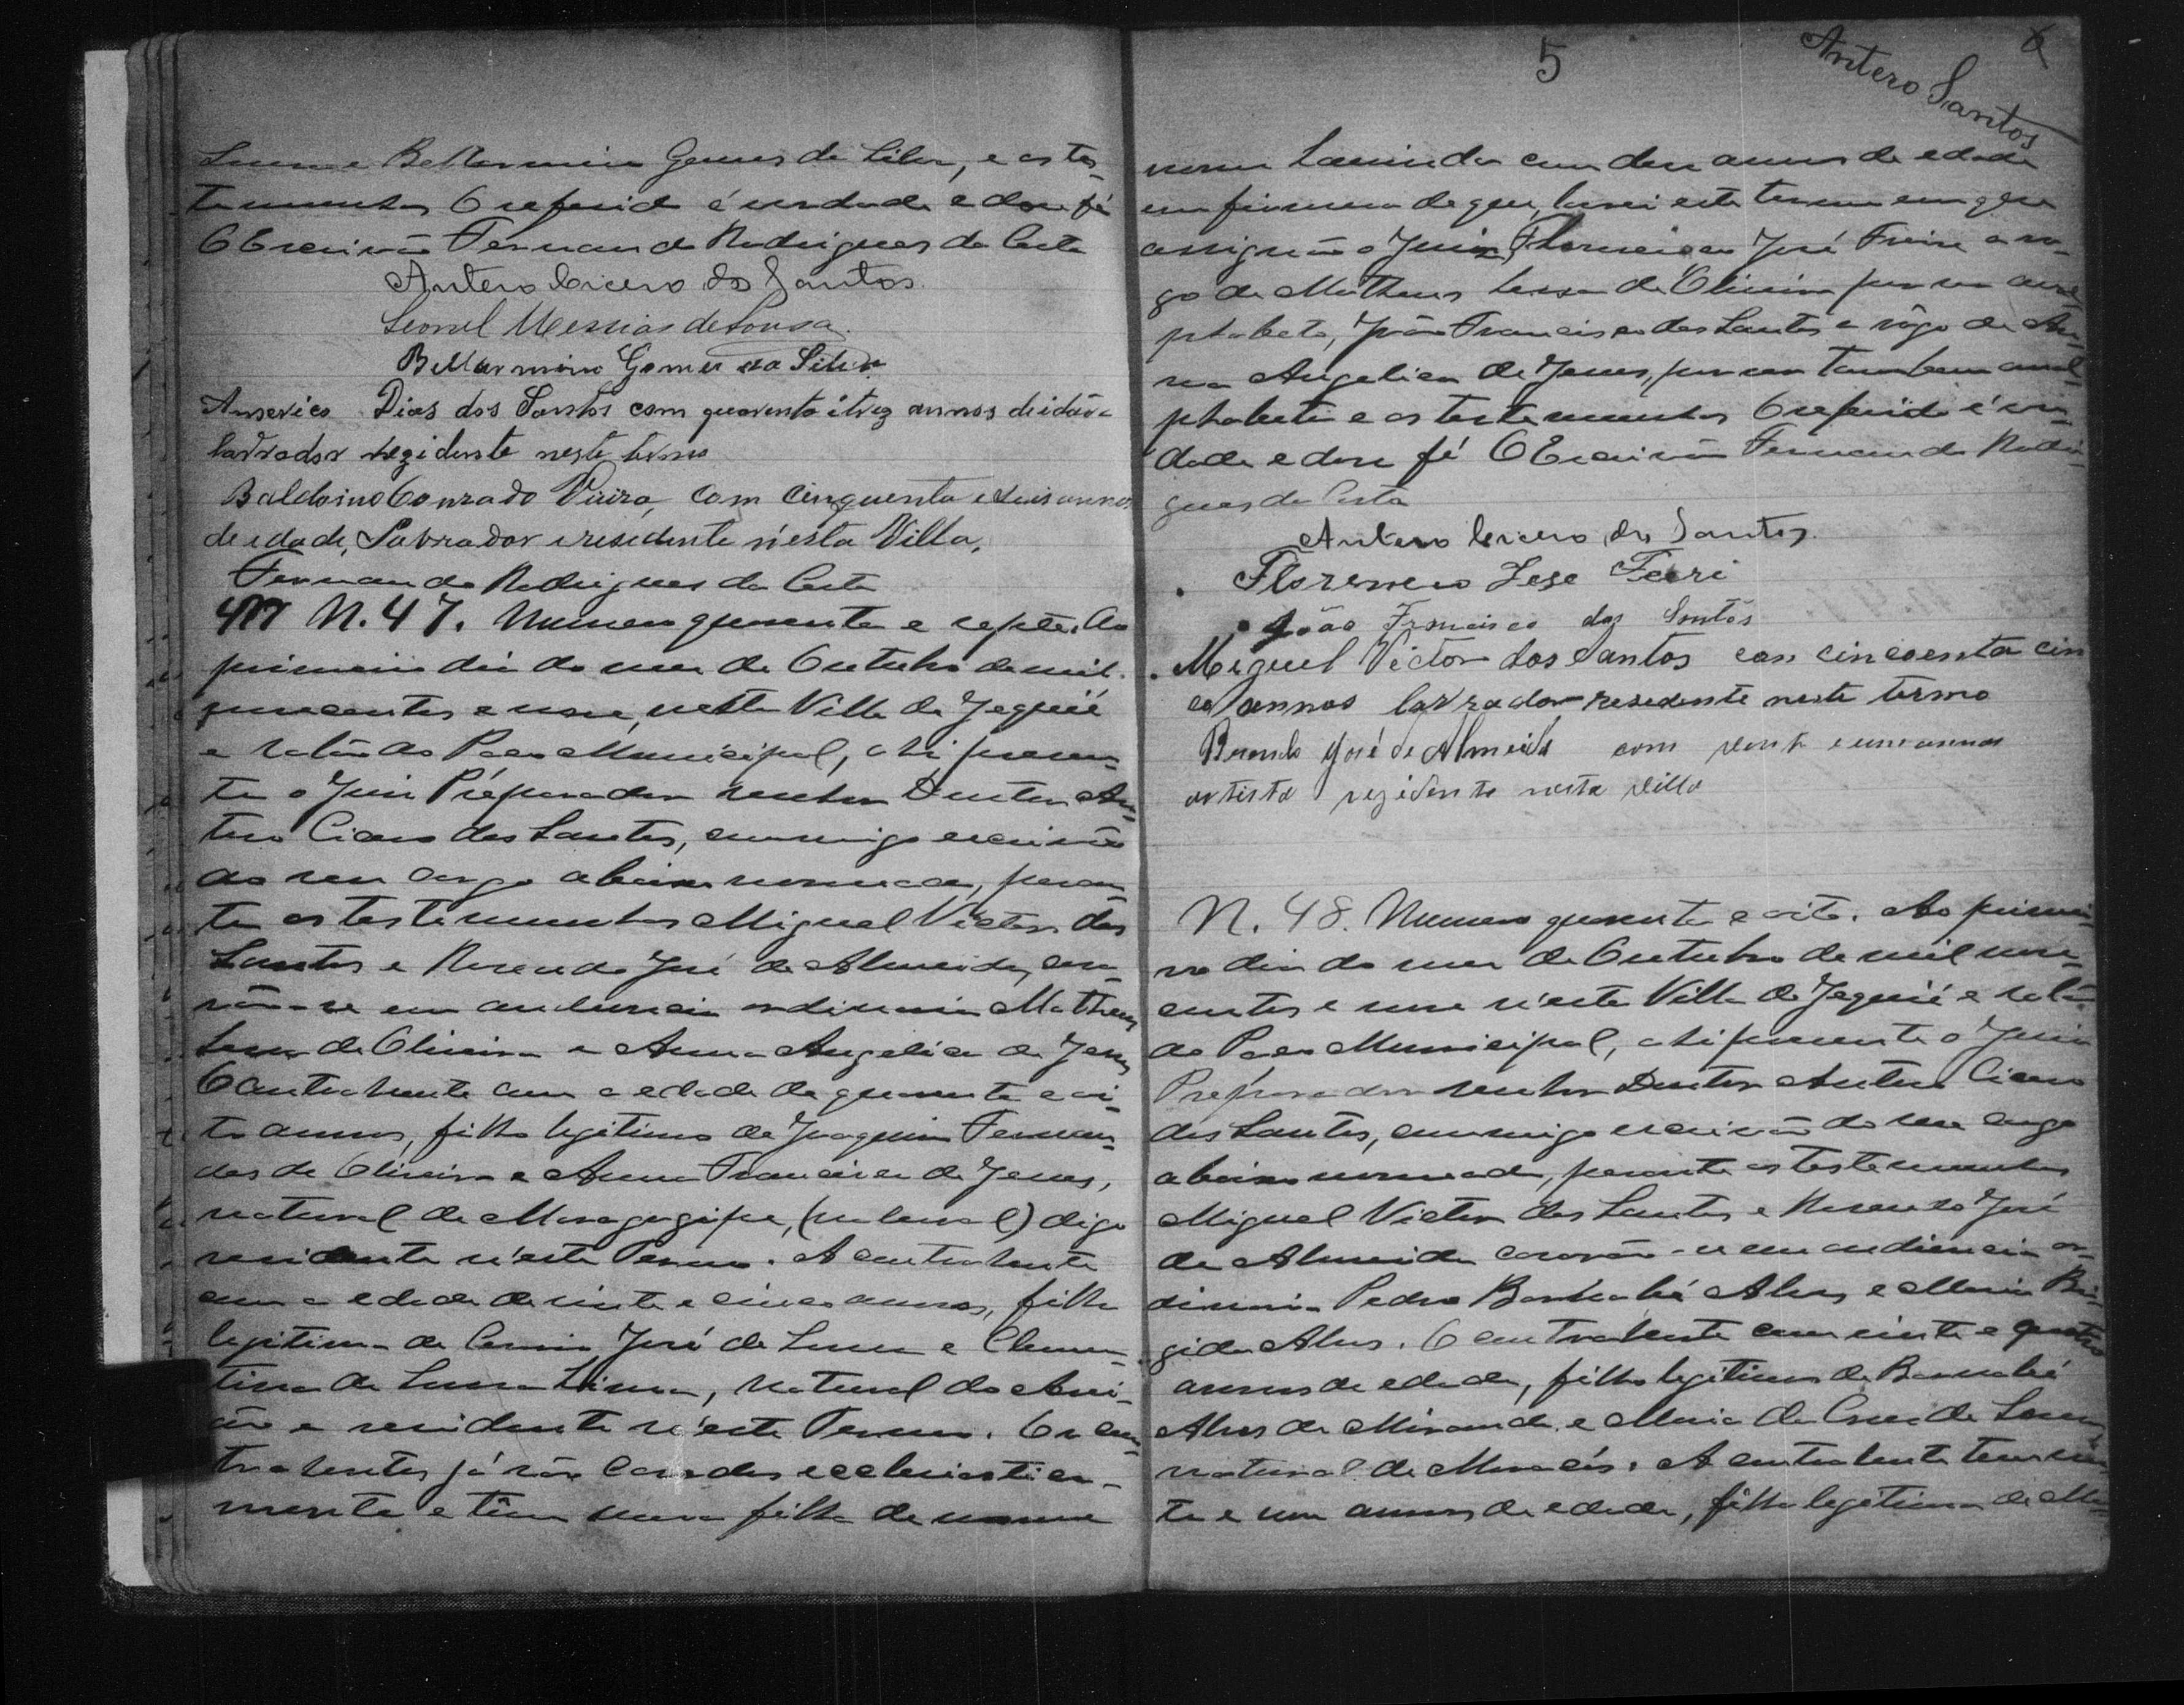 e Bellarmino Gomes da Silva, e as tes-
temunhas O referido é verdade e dou fé
O Escrivão Fernando Rodrigues da Costa
Antero Cicero dos Santos.
Leonel Messias de Sousa.
Bellarmino Gomes da Silva
Americo Dias dos Santos com quarenta i trez annos de idade
lavrador rezidente neste termo
Baldoino Conrado Vieira, com cinquenta e annos
de edade, Lavrador e residente n'esta Villa,
Fernando Rodrigues da Costa
47 N. 47. Numero quarenta e sete. Ao
primeiro dia do mez de Outubro de mil
novecentos e nove, nesta Villa de Jequié
e salão do Paço Municipal, ahi presen-
te o Juiz Preparador senhor Doutor An-
tero Cicero dos Santos, commigo escrivão
do seu cargo abaixo nomeado, peran-
te as testemunhas Miguel Victor dos
Santos e Rosendo José de Almeida, casa-
rão-se em audiencia ordinaria Matheus
de Oliveira e Anna Angelica de Jesus
O contrahente com a edade de quarenta e oi-
to annos, filho legitimo de Joaquim Fernan-
des de Oliveira e Anna Francisca de Jesus,
natural de Maragogipe, (natural) digo
residente n'este Termo. A contrahente
com a edade de vinte e cinco annos, filha
legitima de José de Lima e Clemen-
tina de Lima, natural do
e residente n'este Termo. Os con-
trahentes já são casados ecclesiastica-
mente e têm uma filha de nome
5
6
Antero Santos
nome Laurinda com dez annos de edade
em firmeza do que, lavrei este termo em que
assignão o Juiz, Florencio José Freire a ro-
go de Matheus de Oliveira por ser anal-
phabeto, João Francisco dos Santos a rôgo de An-
na Angelica de Jesus, por ser tambem anal-
phabeta e as testemunhas O referido é ver-
dade e dou fé O Escrivão Fernando Rodri-
gues da Costa
Antero Cicero dos Santos.
Florencio Jose
João Francisco dos Santos
Miguel Victor dos Santos con cincoenta cin
co annos lavrador residente neste termo
Rosendo José de Almeida com vente e um annos
artista rezidente nesta villa
N. 48. Numero quarenta e oito. Ao primei-
ro dia do mez de Outubro de mil nove-
centos e nove n'esta Villa de Jequié e salão
do Paço Municipal, ahi presente o Juiz
Preparador senhor Doutor Antero Cicero
dos Santos, commigo escrivão do seu cargo
abaixo nomeado, perante as testemunhas
Miguel Victor dos Santos e Rosendo José
de Almeida casarão-se em audiencia or-
dinaria Pedro Barnabé Alves e Maria Bri-
gida Alves. O contrahente com vinte e quatro
annos de edade, filho legitimo de Barnabé
Alves de Miranda e Maria da Cruz de
natural de Maracás. A contrahente tem vin-
te e um annos de edade, filha legitima de